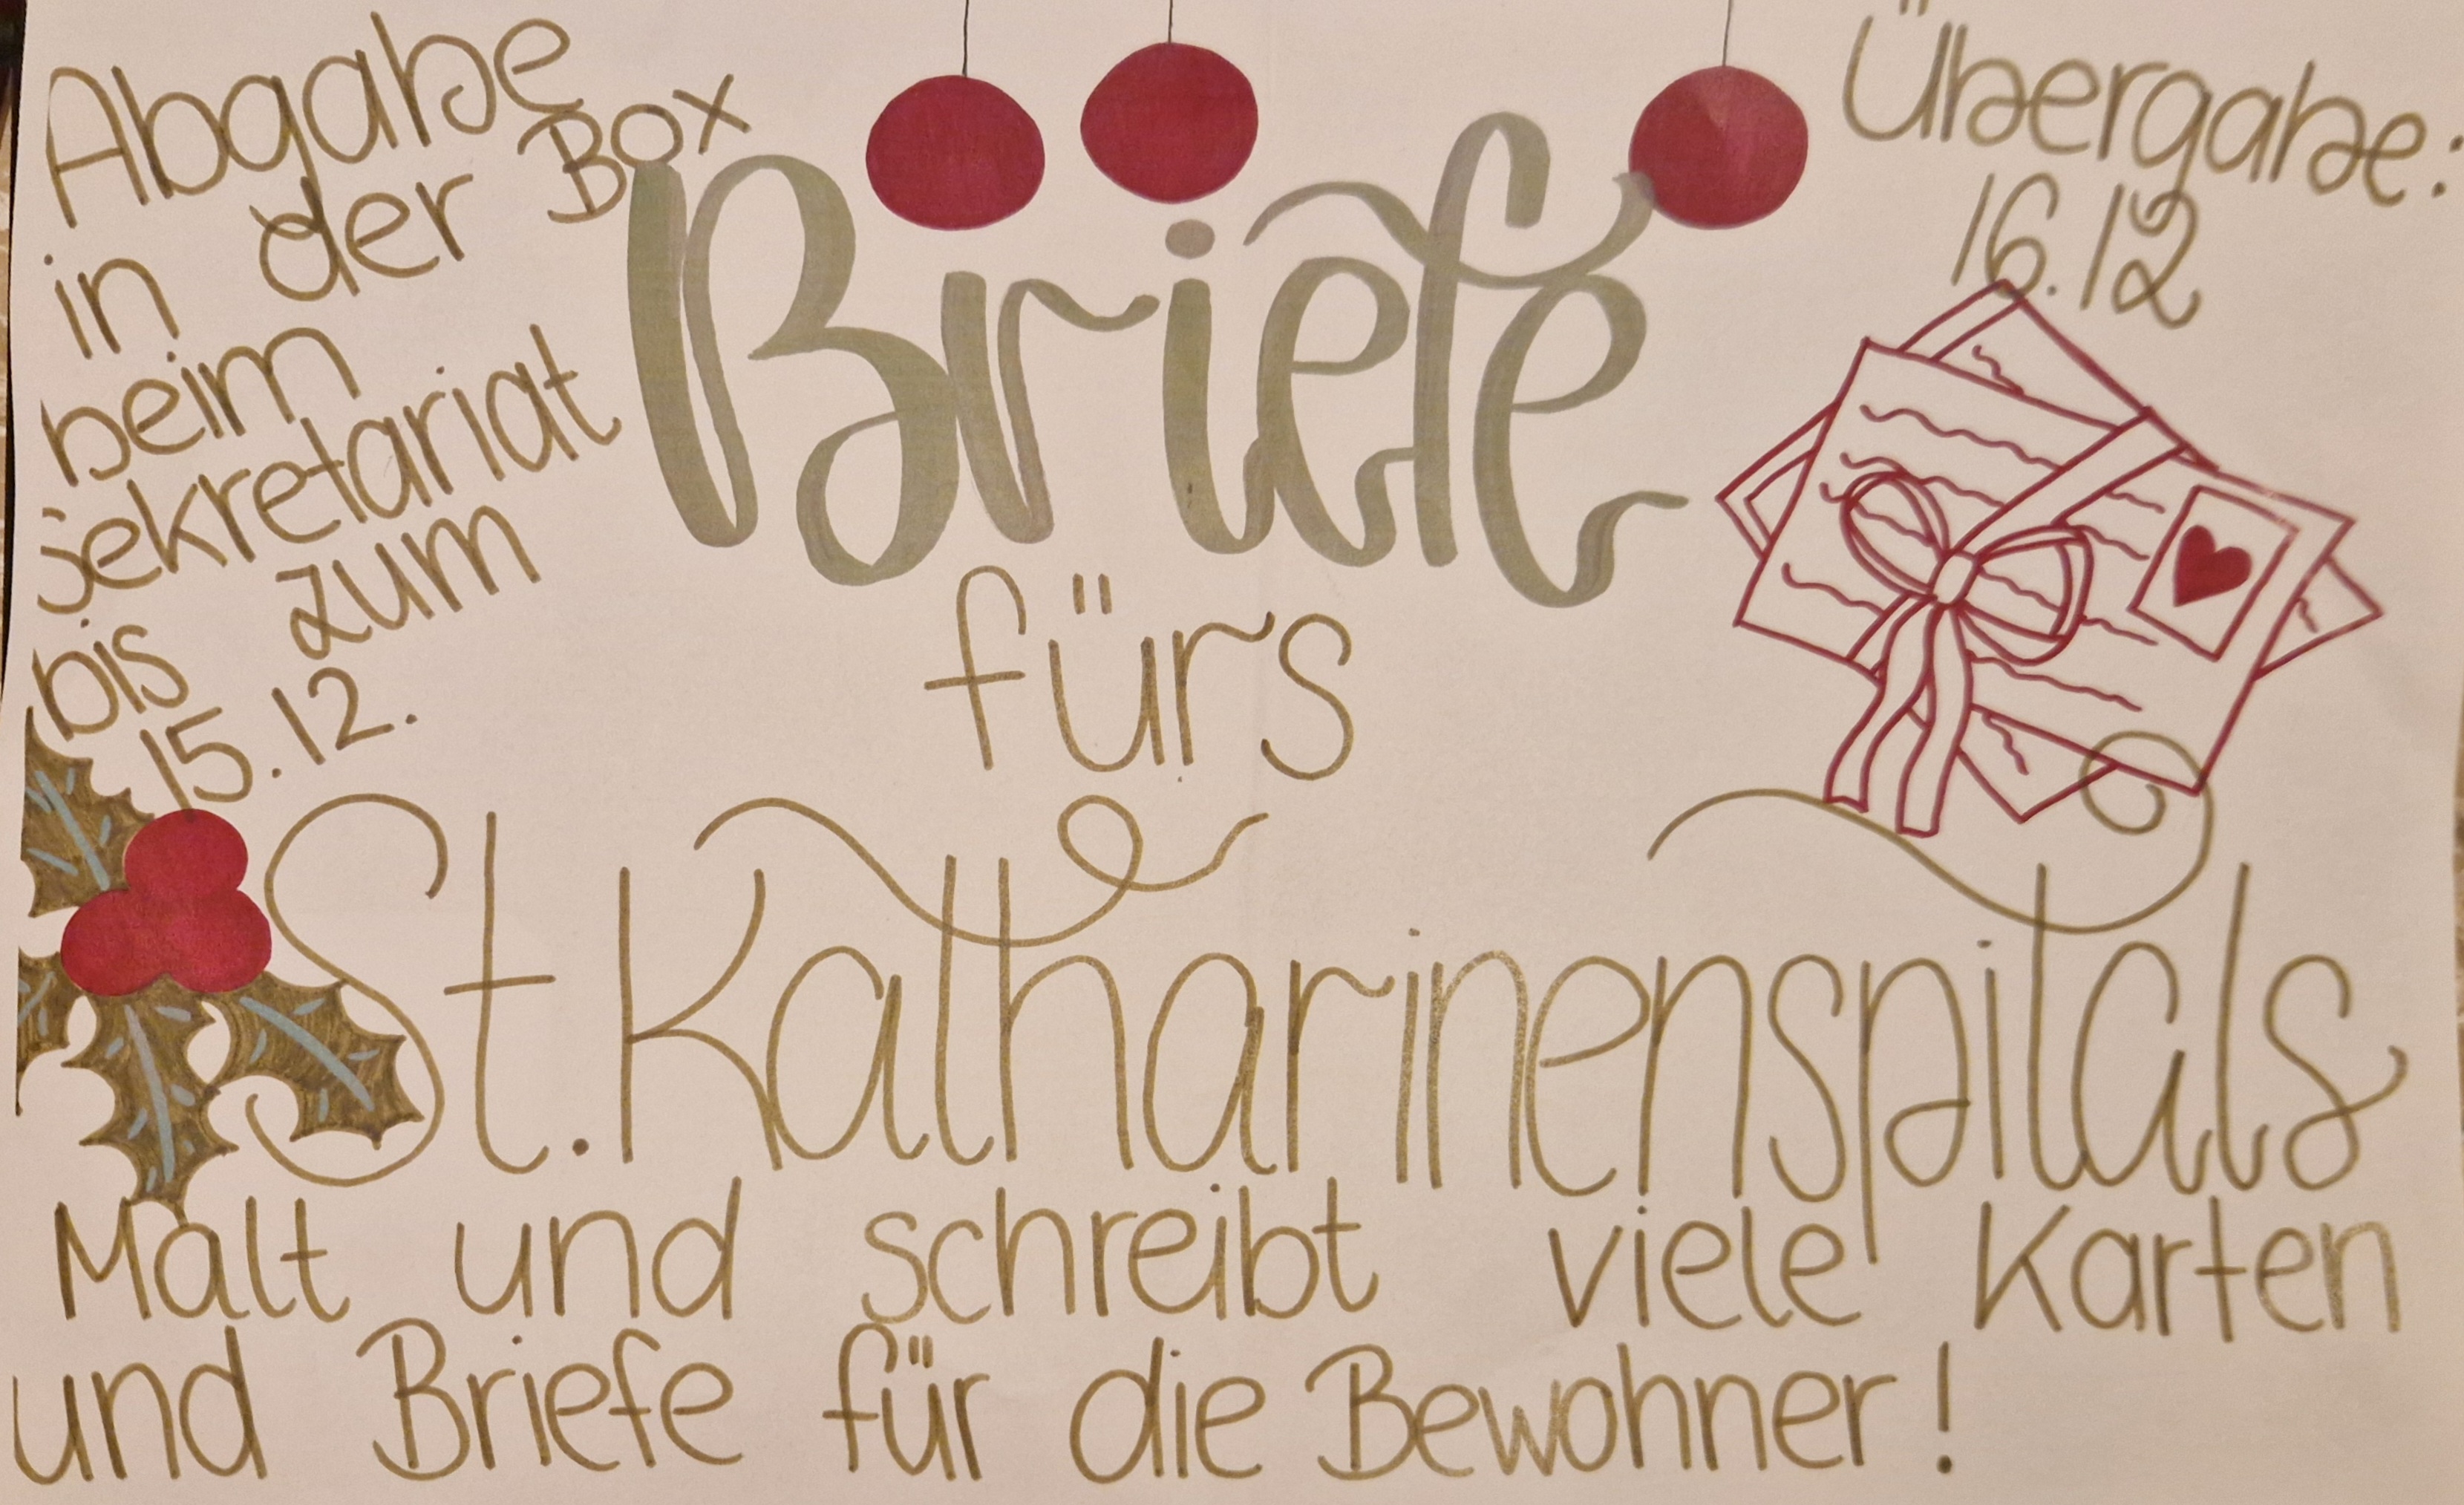 Abgabe
in der Box
beim
Sekretariat
bis zum
15.12.
Briefe
fürs
St. Katharinenspitals
Übergabe:
16.12
Malt und schreibt viele Karten
und Briefe für die Bewohner!